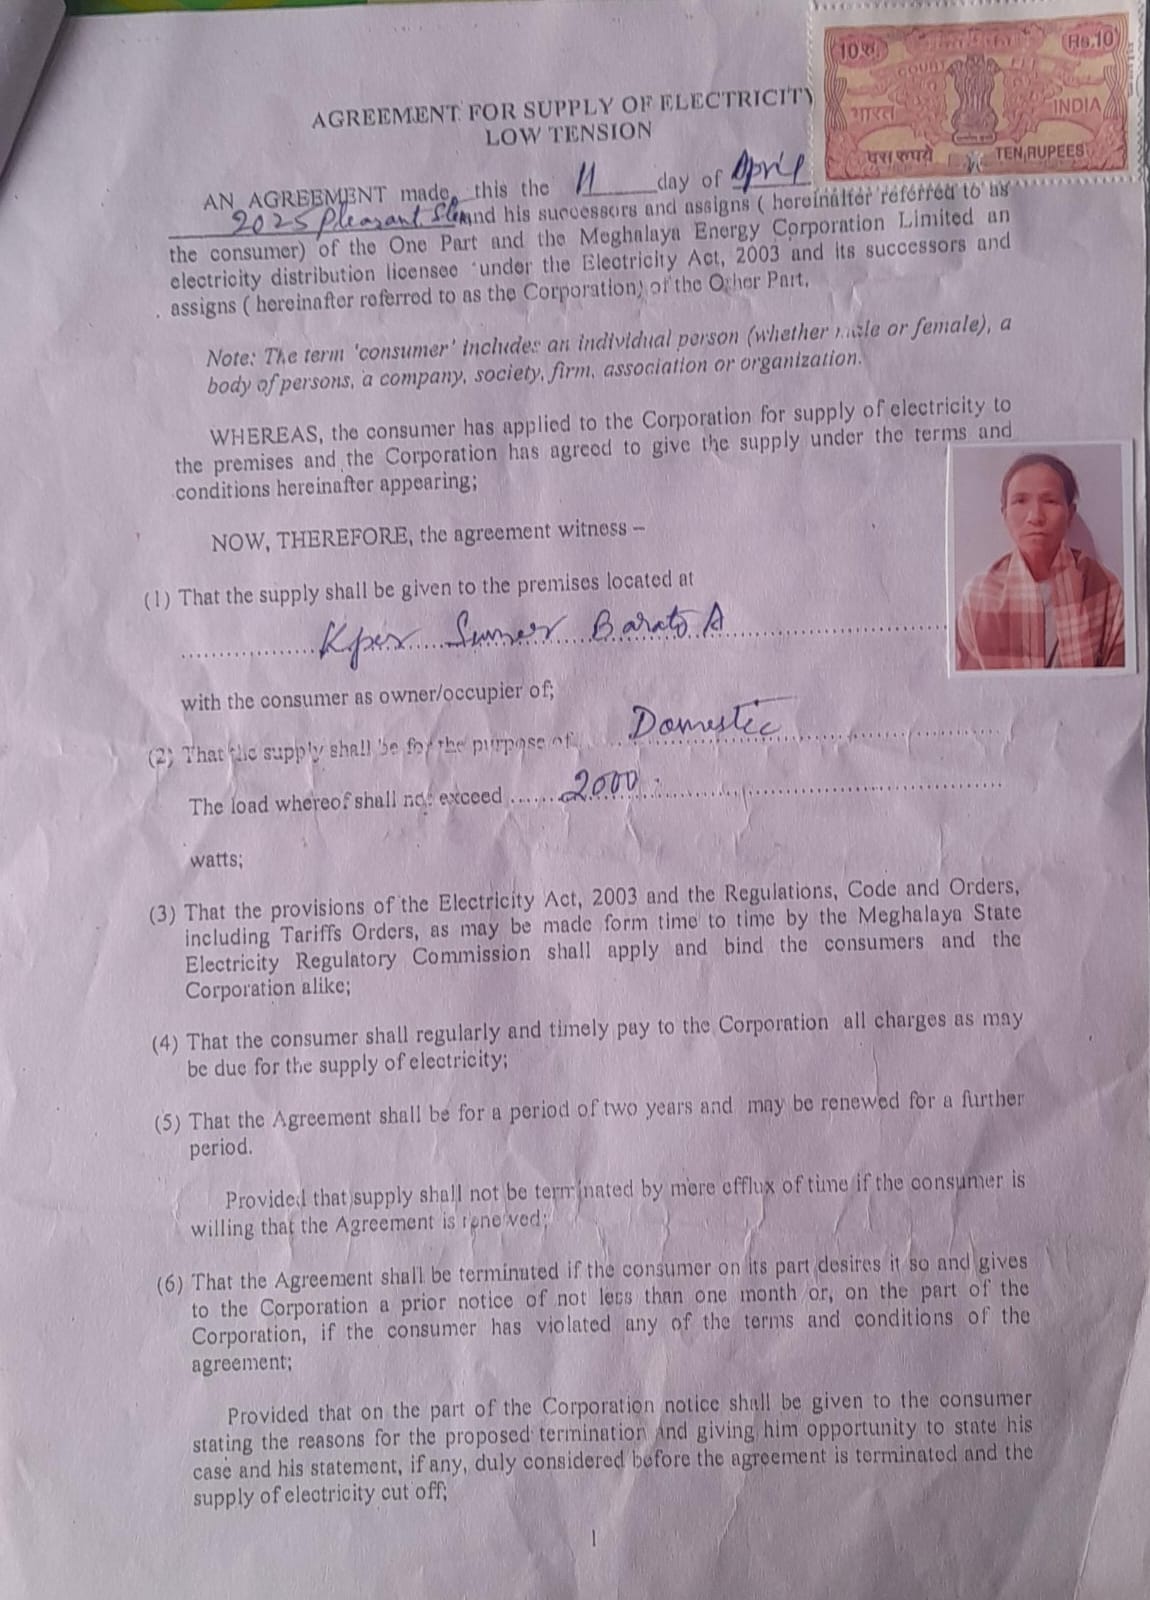 10 रु.
Rs.10
COURT FEE
भारत
INDIA
दस रुपये
TEN RUPEES
AGREEMENT FOR SUPPLY OF ELECTRICITY
LOW TENSION
AN AGREEMENT made this the 11 day of April
2025 Pleasant and his successors and assigns ( hereinafter referred to as
the consumer) of the One Part and the Meghalaya Energy Corporation Limited an
electricity distribution licensee under the Electricity Act, 2003 and its successors and
assigns ( hereinafter referred to as the Corporation) of the Other Part.
Note: The term 'consumer' includes an individual person (whether male or female), a
body of persons, a company, society, firm, association or organization.
WHEREAS, the consumer has applied to the Corporation for supply of electricity to
the premises and the Corporation has agreed to give the supply under the terms and
conditions hereinafter appearing;
NOW, THEREFORE, the agreement witness –
(1) That the supply shall be given to the premises located at
Sumer Barato A
with the consumer as owner/occupier of;
(2) That the supply shall be for the purpose of Domestic
The load whereof shall not exceed ...... 2000
watts;
(3) That the provisions of the Electricity Act, 2003 and the Regulations, Code and Orders,
including Tariffs Orders, as may be made form time to time by the Meghalaya State
Electricity Regulatory Commission shall apply and bind the consumers and the
Corporation alike;
(4) That the consumer shall regularly and timely pay to the Corporation all charges as may
be due for the supply of electricity;
(5) That the Agreement shall be for a period of two years and may be renewed for a further
period.
Provided that supply shall not be terminated by mere efflux of time if the consumer is
willing that the Agreement is renewed;
(6) That the Agreement shall be terminated if the consumer on its part desires it so and gives
to the Corporation a prior notice of not less than one month or, on the part of the
Corporation, if the consumer has violated any of the terms and conditions of the
agreement;
Provided that on the part of the Corporation notice shall be given to the consumer
stating the reasons for the proposed termination and giving him opportunity to state his
case and his statement, if any, duly considered before the agreement is terminated and the
supply of electricity cut off;
1